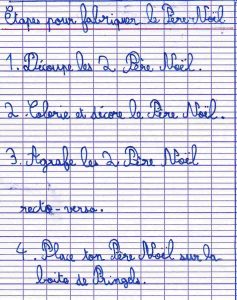 Etapes pour fabriquer le Père-Noël
1. Découpe les 2 Père Noël.
2. Colorie et décore le Père Noël.
3. Agrafe les 2 Père Noël
recto-verso.
4. Place ton Père Noël sur la
boite de Pringels.